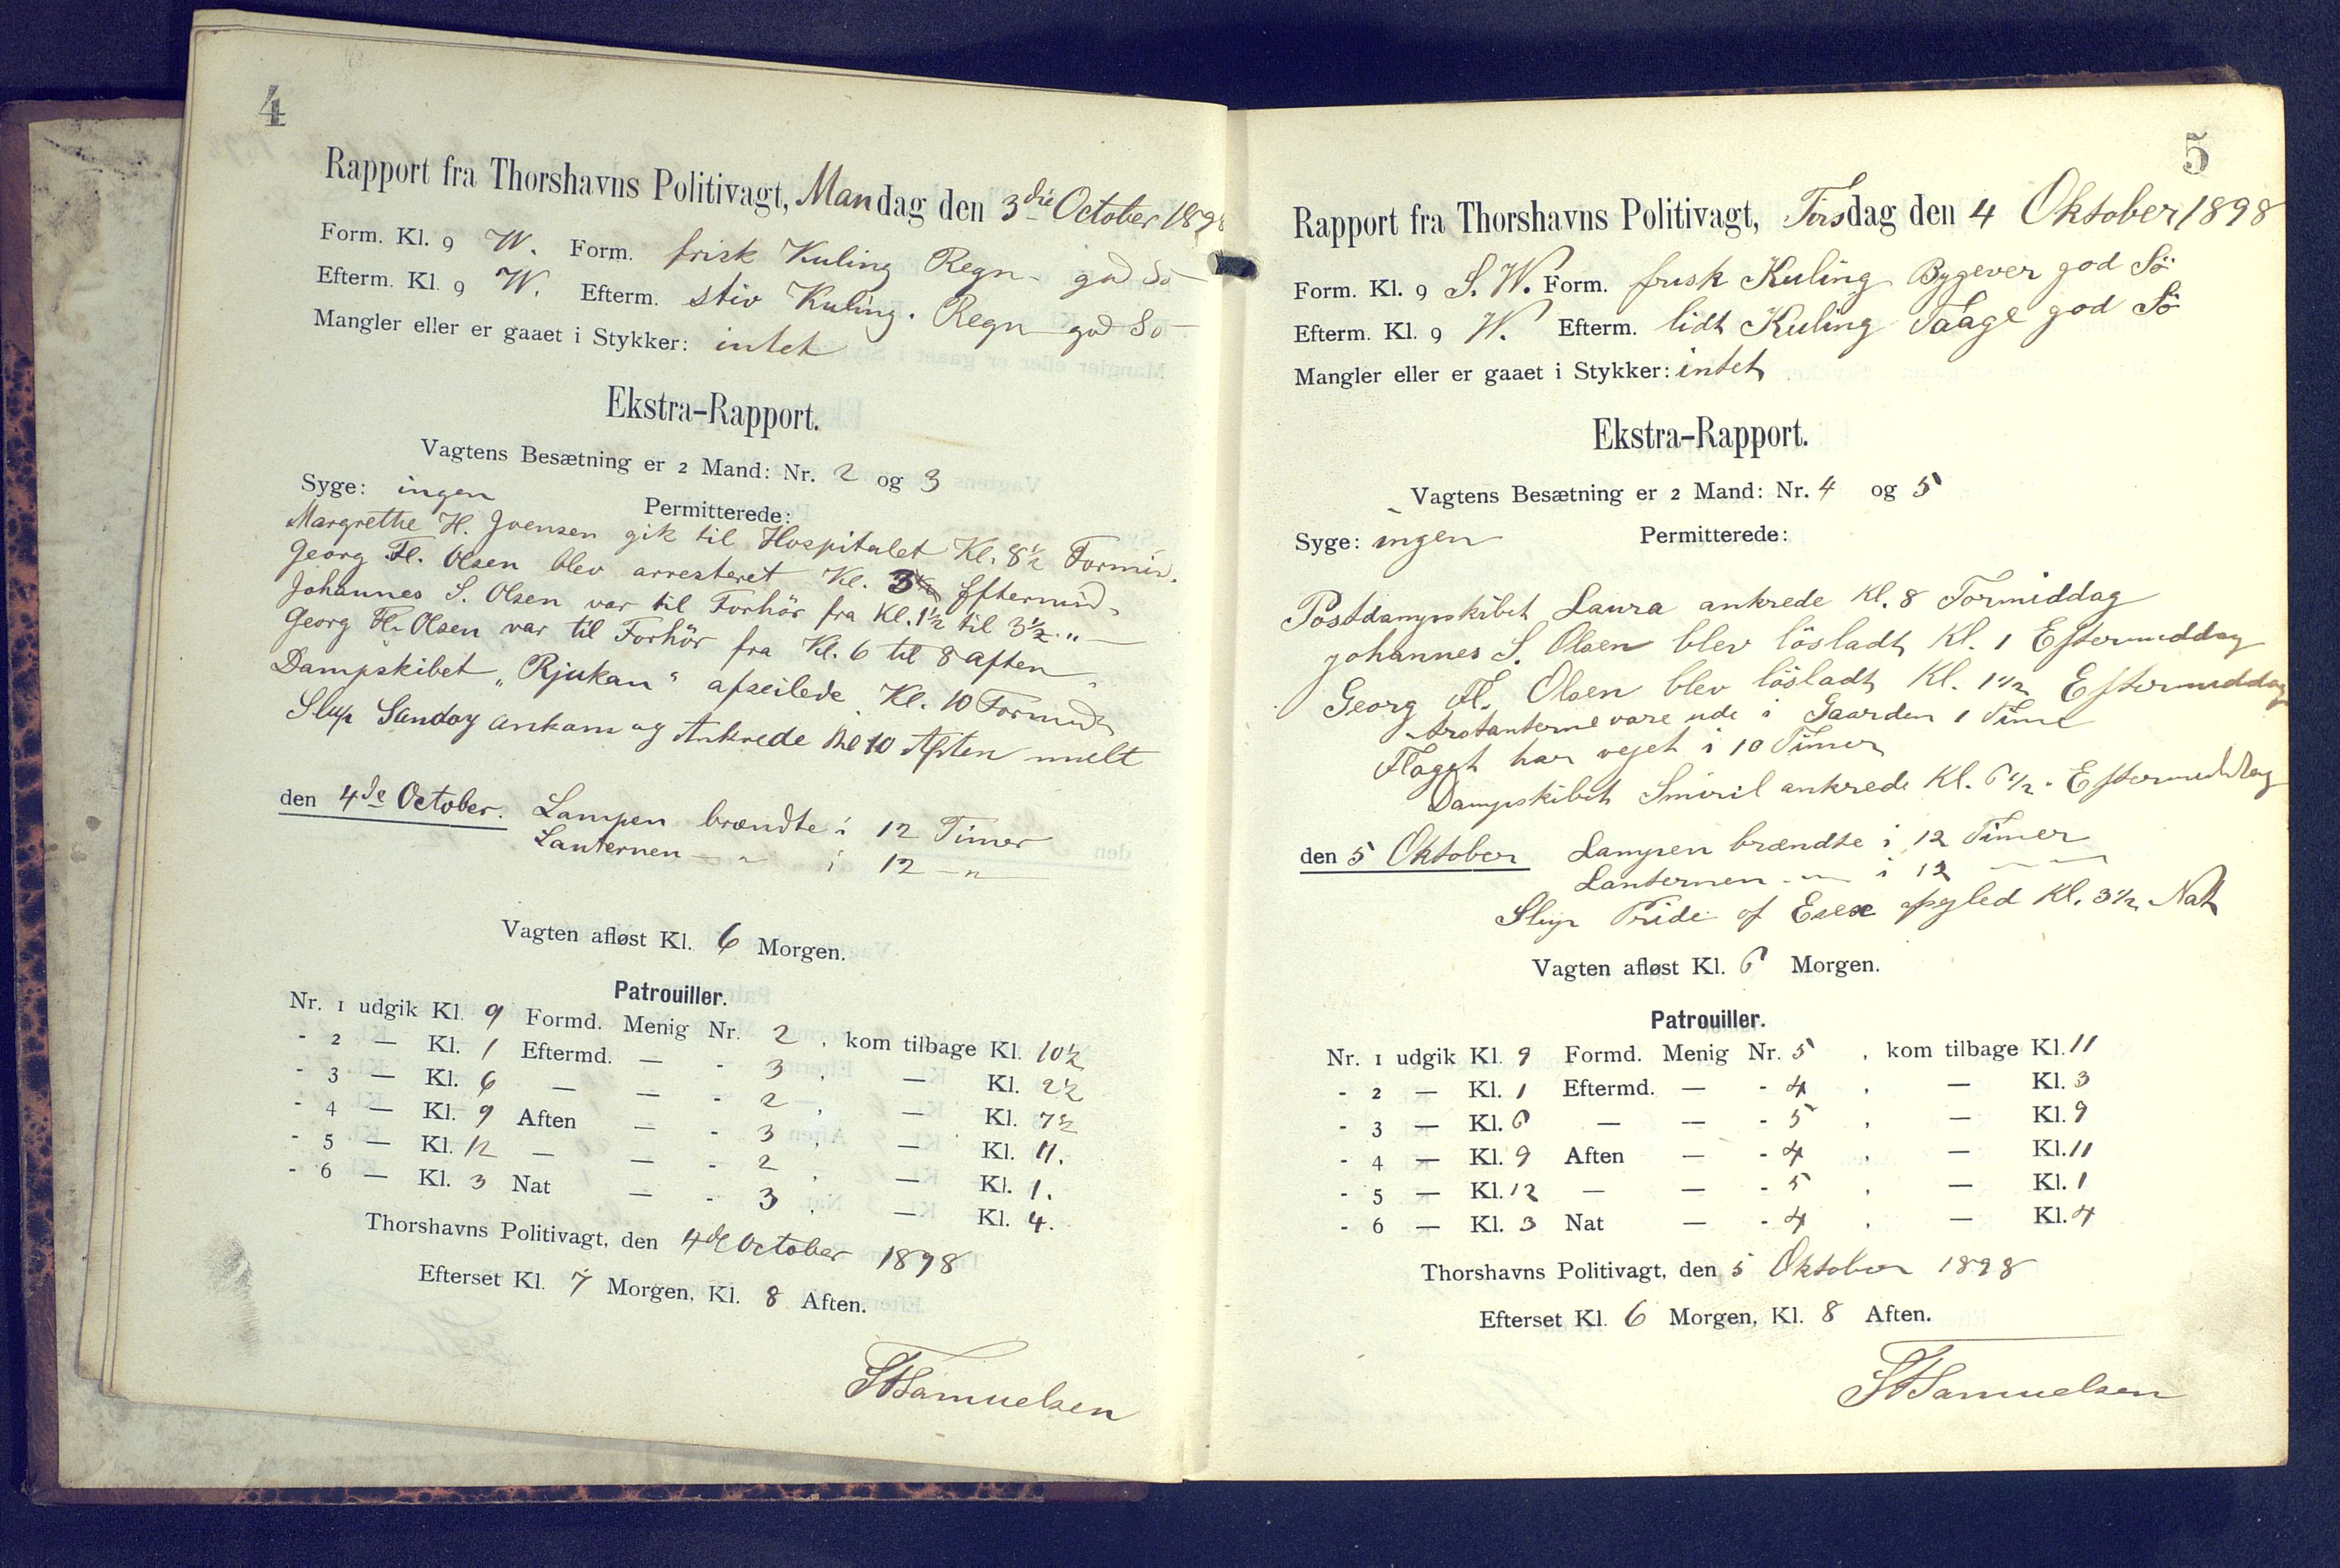 4
Rapport fra Thorshavns Politivagt, Mandag den 3die October 189
Form. Kl. 9 W. Form. frisk Kuling Regn - god Sö
Efterm. Kl. 9 W. Efterm. stiv Kuling. Regn god Sö
Mangler eller er gaaet i Stykker: intet
Ekstra-Rapport.
Vagtens Besætning er 2 Mand: Nr. 2 og 3
Syge: ingen Permitterede:
Margrethe H. Joensen gik til Hospitalet Kl. 8½ Formid.
Georg Fl. Olsen blev arresteret Kl. 3 Eftermid.
Johannes S. Olsen var til Forhör fra Kl. 1½ til 3½ " —
Georg Fl. Olsen var til Forhör fra Kl. 6 til 8 Aften
Dampskibet „Rjukan“ afseilede Kl. 10 Formid.
Slup Sandoy ankom og Ankrede Kl 10 Aften
den 4de October. Lampen brændte i 12 Timer
Lanternen — " i 12 — "
Vagten afløst Kl. 6 Morgen.
Patrouiller.
Nr. 1 udgik Kl. 9 Formd. Menig Nr. 2, kom tilbage Kl. 10½
- 2 — Kl. 1 Eftermd. — - 3, — Kl. 2½
- 3 — Kl. 6 — — - 2, — Kl. 7½
- 4 — Kl. 9 Aften — - 3, — Kl. 11.
- 5 — Kl. 12 — — - 2, — Kl. 1.
- 6 — Kl. 3 Nat — - 3, — Kl. 4.
Thorshavns Politivagt, den 4de October 1898
Efterset Kl. 7 Morgen, Kl. 8 Aften.
Samuelsen
5
Rapport fra Thorshavns Politivagt, Tirsdag den 4 Oktober 1898
Form. Kl. 9 S. W. Form. frisk Kuling Bygever god Sö
Efterm. Kl. 9 W. Efterm. lidt Kuling Taage god Sö
Mangler eller er gaaet i Stykker: intet
Ekstra-Rapport.
Vagtens Besætning er 2 Mand: Nr. 4 og 5
Syge: ingen Permitterede:
Postdampskibet Laura ankrede Kl. 8 Formiddag
Johannes S. Olsen blev lösladt Kl. 1 Eftermiddag
Georg Fl. Olsen blev lösladt Kl. 1½ Eftermiddag
Arrstanterne vare ude i Gaarden 1 Time
Flaget har vejet i 10 Timer
Dampskibet Smiril ankrede Kl. 6½ Eftermiddag
den 5 Oktober Lampen brændte i 12 Timer
Lanternen — i 12 —
Slup Pride of Esex Kl. 3½ Nat
Vagten afløst Kl. 6 Morgen.
Patrouiller.
Nr. 1 udgik Kl. 9 Formd. Menig Nr. 5, kom tilbage Kl. 11
- 2 — Kl. 1 Eftermd. — - 4, — Kl. 3
- 3 — Kl. 6 — — - 5, — Kl. 9
- 4 — Kl. 9 Aften — - 4, — Kl. 11
- 5 — Kl. 12 — — - 5, — Kl. 1
- 6 — Kl. 3 Nat — - 4, — Kl. 4
Thorshavns Politivagt, den 5 Oktober 1898
Efterset Kl. 6 Morgen, Kl. 8 Aften.
Samuelsen